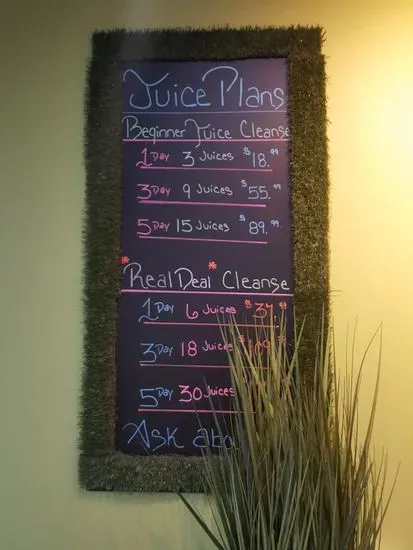 Juice Plans
Beginner Juice Cleanse
1 Day 3 Juices $18.99
3 Day 9 Juices $55.99
5 Day 15 Juices $89.99
*Real Deal* Cleanse
1 Day 6 Juices $37.99
3 Day 18 Juices
5 Day 30 Juices
Ask